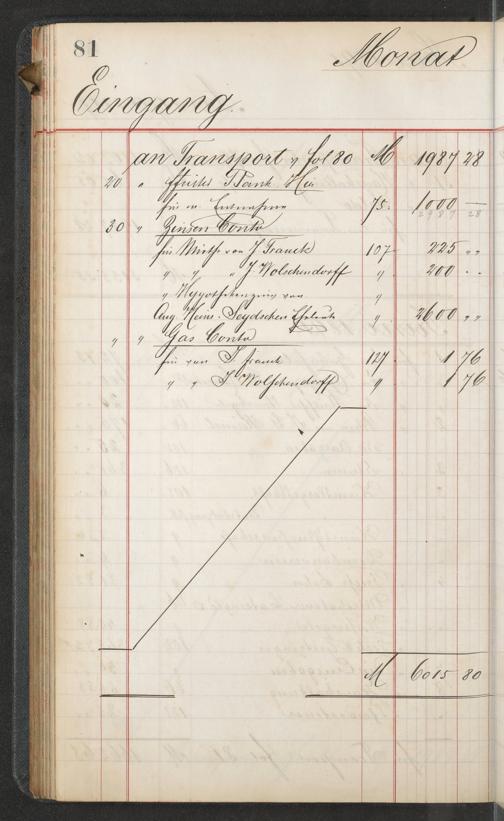 81
Monat
Eingang.
an Transport v fol 80 M 1987 28
20 " Bank Hier
für m Entnahme 75. 1000 —
2987 28
30 " Zinsen Conto
für Miethe von J Franck 107 225 "
" " " J. Wolschendorff " 200 "
" Hypothekenzins von "
Aug. Heinr. Seydschen Eheleute " 2600 "
" " Gas Conto
für von J. Franck 127 1 76
" " J Wolschendorff " 1 76
M 6015 80